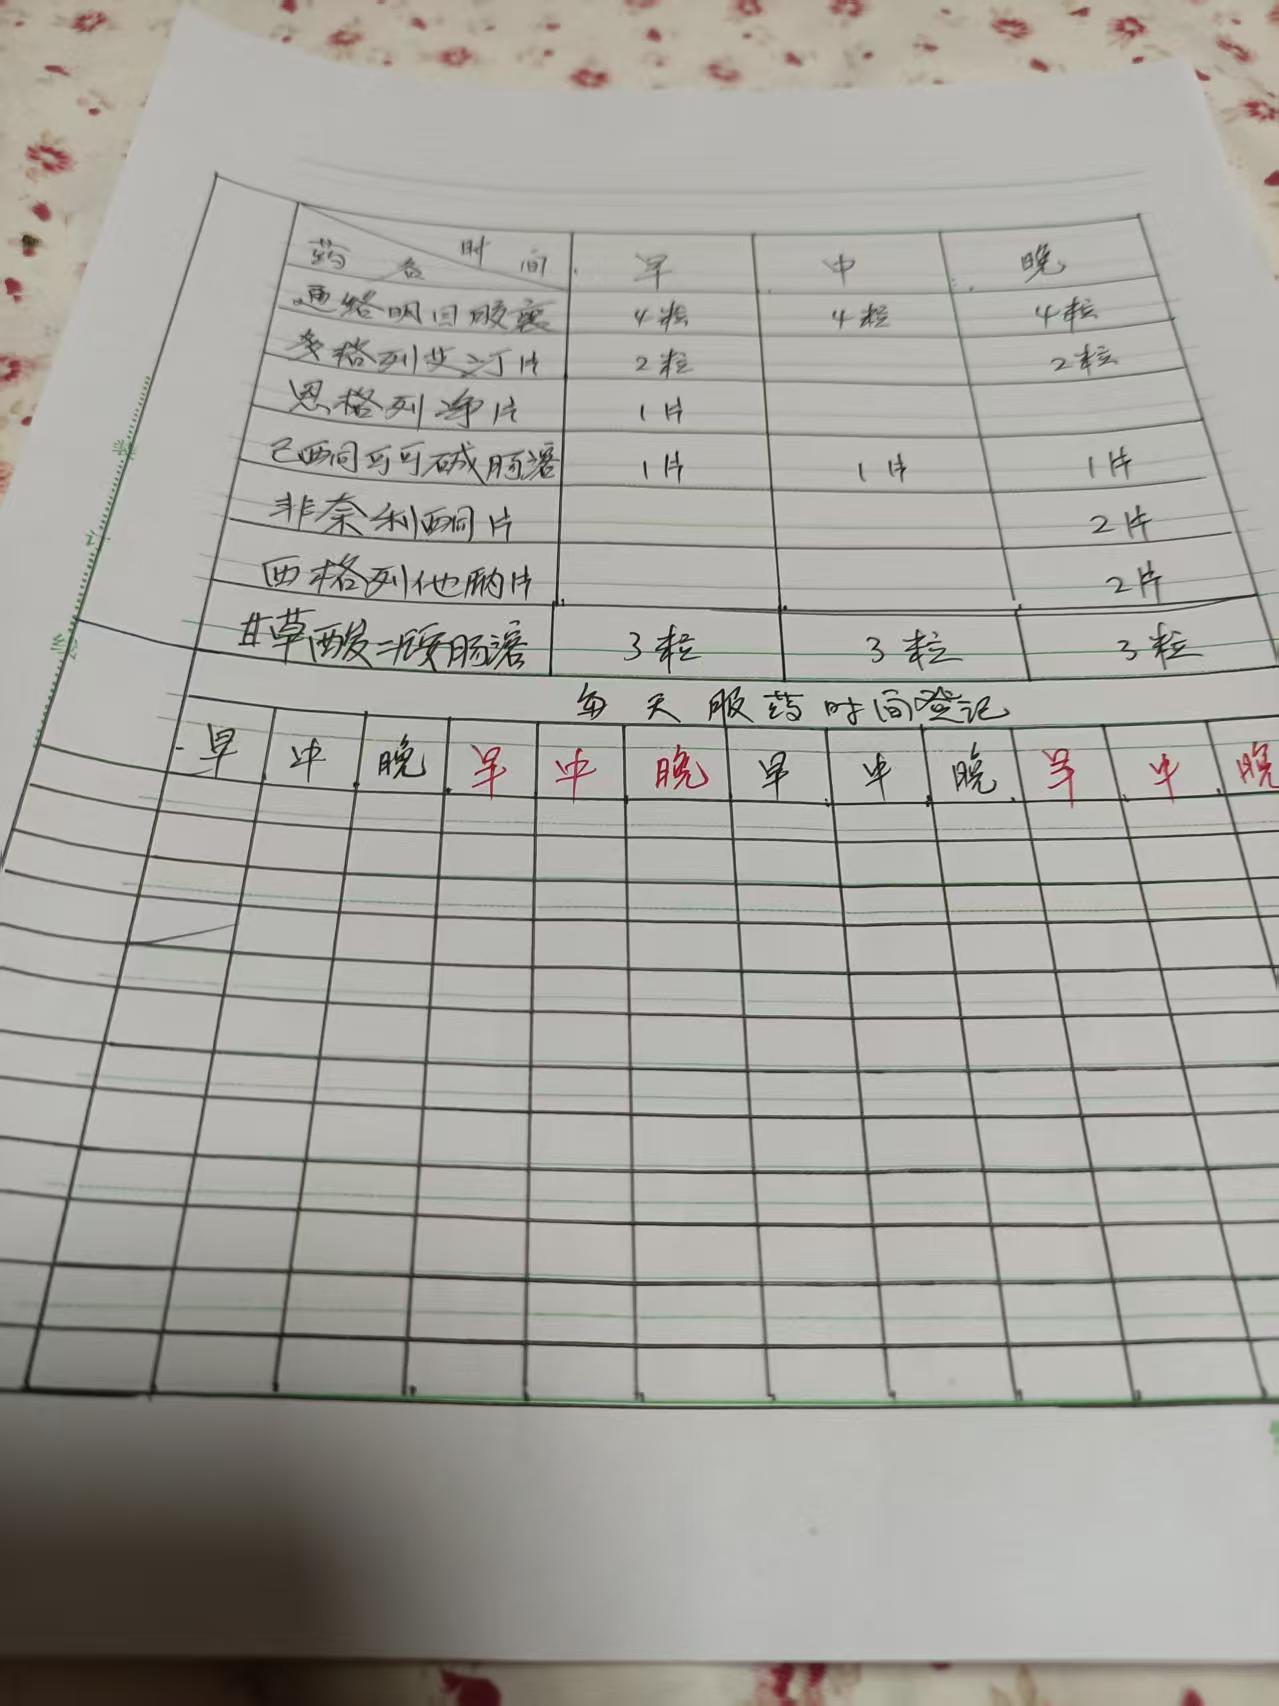 药名 时间 早 中 晚
通络明目胶囊 4粒 4粒 4粒
多格列艾汀片 2粒 2粒
恩格列净片 1片
己酮可可碱肠溶 1片 1片 1片
非奈利酮片 2片
西格列他钠片 2片
甘草酸二铵肠溶 3粒 3粒 3粒
每天服药时间登记
早 中 晚 早 中 晚 早 中 晚 早 中 晚